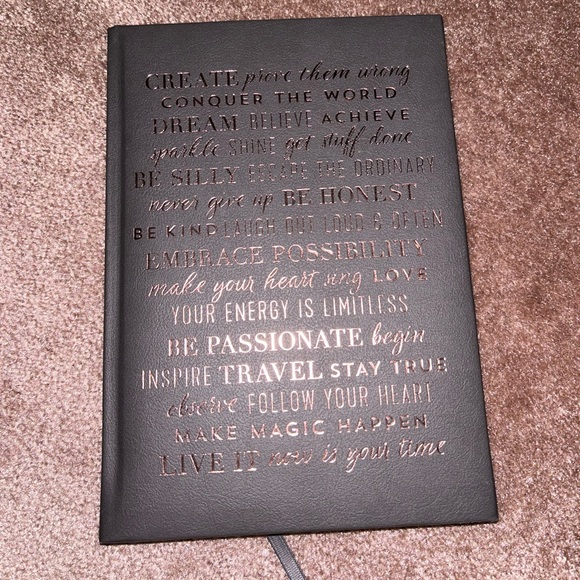 CREATE prove them wrong
CONQUER THE WORLD
DREAM BELIEVE ACHIEVE
sparkle SHINE get stuff done
BE SILLY ESCAPE THE ORDINARY
never give up BE HONEST
BE KIND LAUGH OUT LOUD & OFTEN
EMBRACE POSSIBILITY
make your heart sing LOVE
YOUR ENERGY IS LIMITLESS
BE PASSIONATE begin
INSPIRE TRAVEL STAY TRUE
observe FOLLOW YOUR HEART
MAKE MAGIC HAPPEN
LIVE IT now is your time